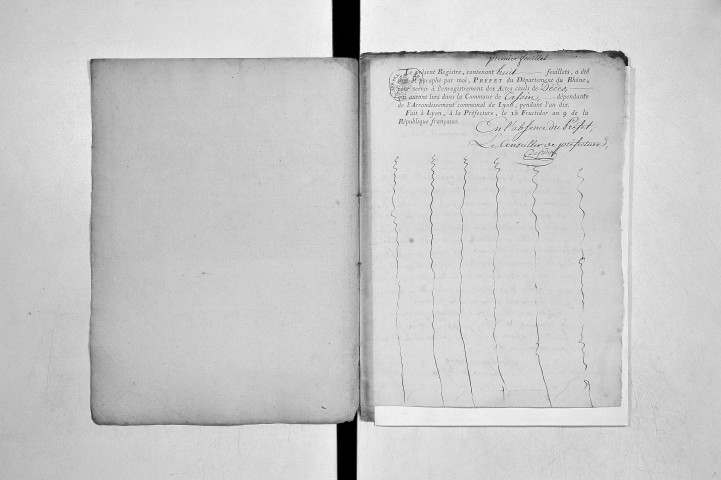 premier feuillet
Le présent Registre, contenant huit feuillets, a été
paraphé par moi, PRÉFET du Département du Rhône,
pour servir à l'enregistrement des Actes civils de Décès
qui auront lieu dans la Commune de Cassin, dépendante
de l'Arrondissement communal de Lyon, pendant l'an dix.
Fait à Lyon, à la Préfecture, le 18 Fructidor an 9 de la
République française.
En l'absence du Préfet,
Le Conseiller de préfecture,